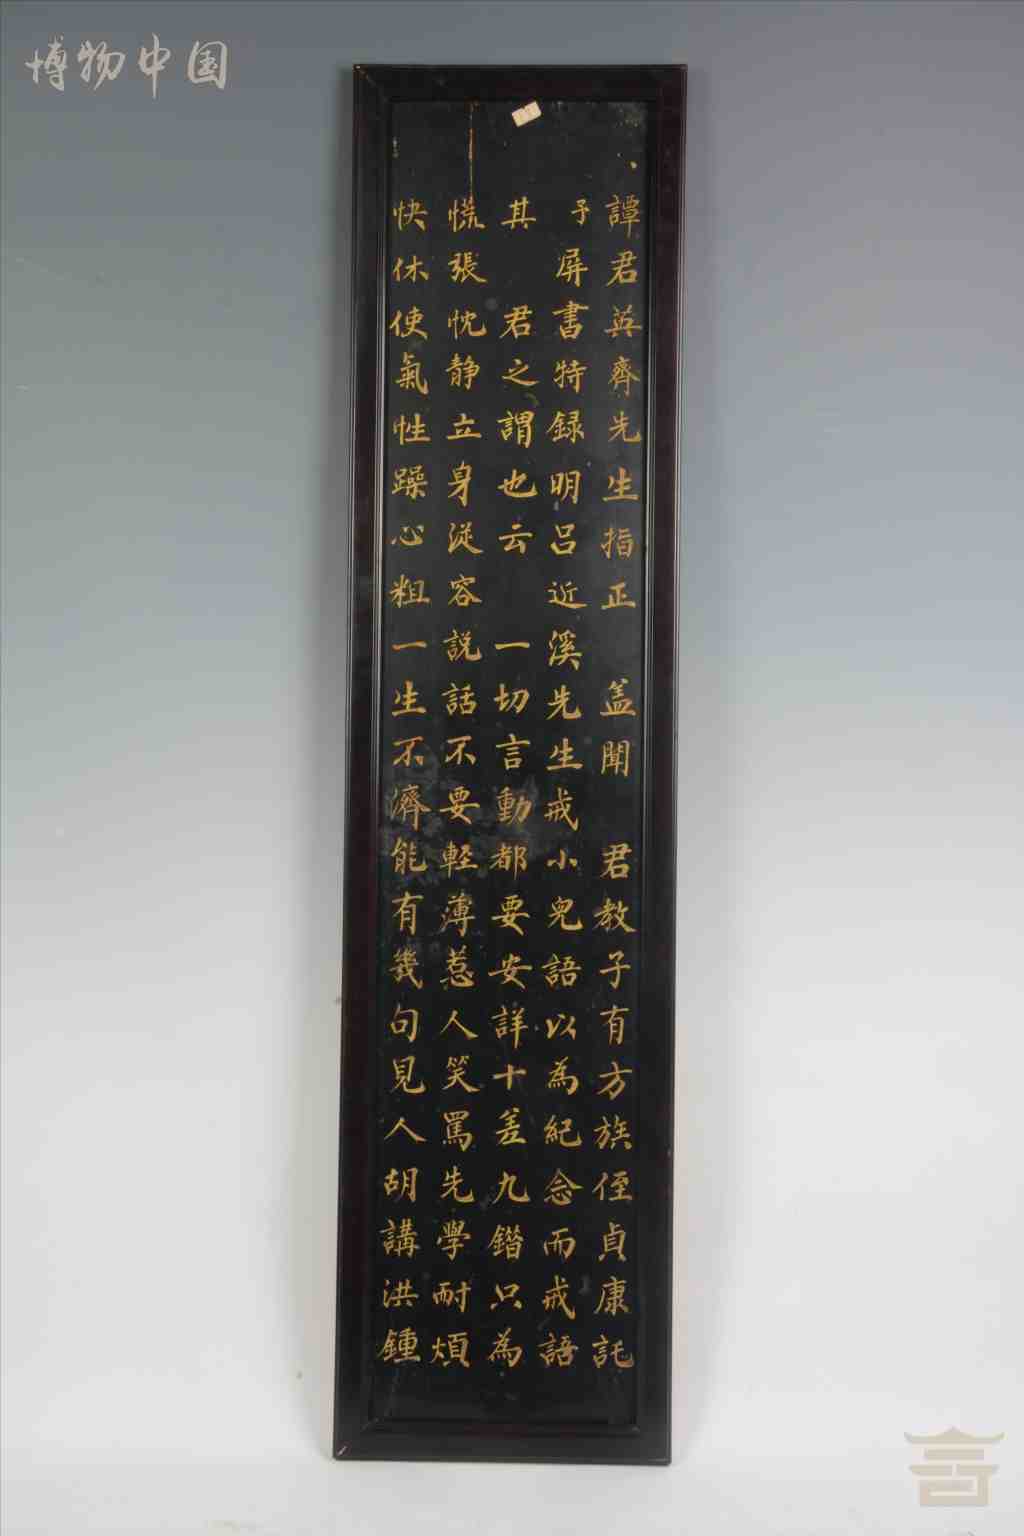 博物中国
譚君英齊先生指正 盖聞 君教子有方族侄貞康託
予屏書特録明吕近溪先生戒小兒語以為紀念而戒語
其 君之謂也云 一切言動都要安詳十差九錯只為
慌張忱静立身従容説話不要輕薄惹人笑罵先學耐煩
快休使氣性躁心粗一生不濟能有幾句見人胡講洪鍾